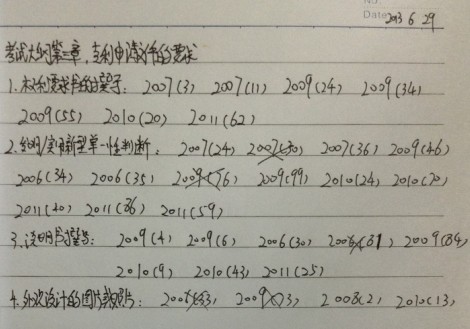 No.
Date 2013 6 29
考试大纲第三章,专利申请文件的要求
1.权利要求书的撰写: 2007(3) 2007(11) 2009(24) 2009(34)
2009(55) 2010(20) 2011(62)
2.发明/实用新型单一性判断: 2007(24) 2007(50) 2007(36) 2009(46)
2006(34) 2006(35) 2009(76) 2009(99) 2010(24) 2010(70)
2011(40) 2011(36) 2011(59)
3.说明书撰写: 2009(4) 2009(6) 2006(30) 2006(31) 2009(84)
2010(9) 2010(43) 2011(25)
4.外观设计的图片或照片: 2009(73) 2008(2) 2010(13)